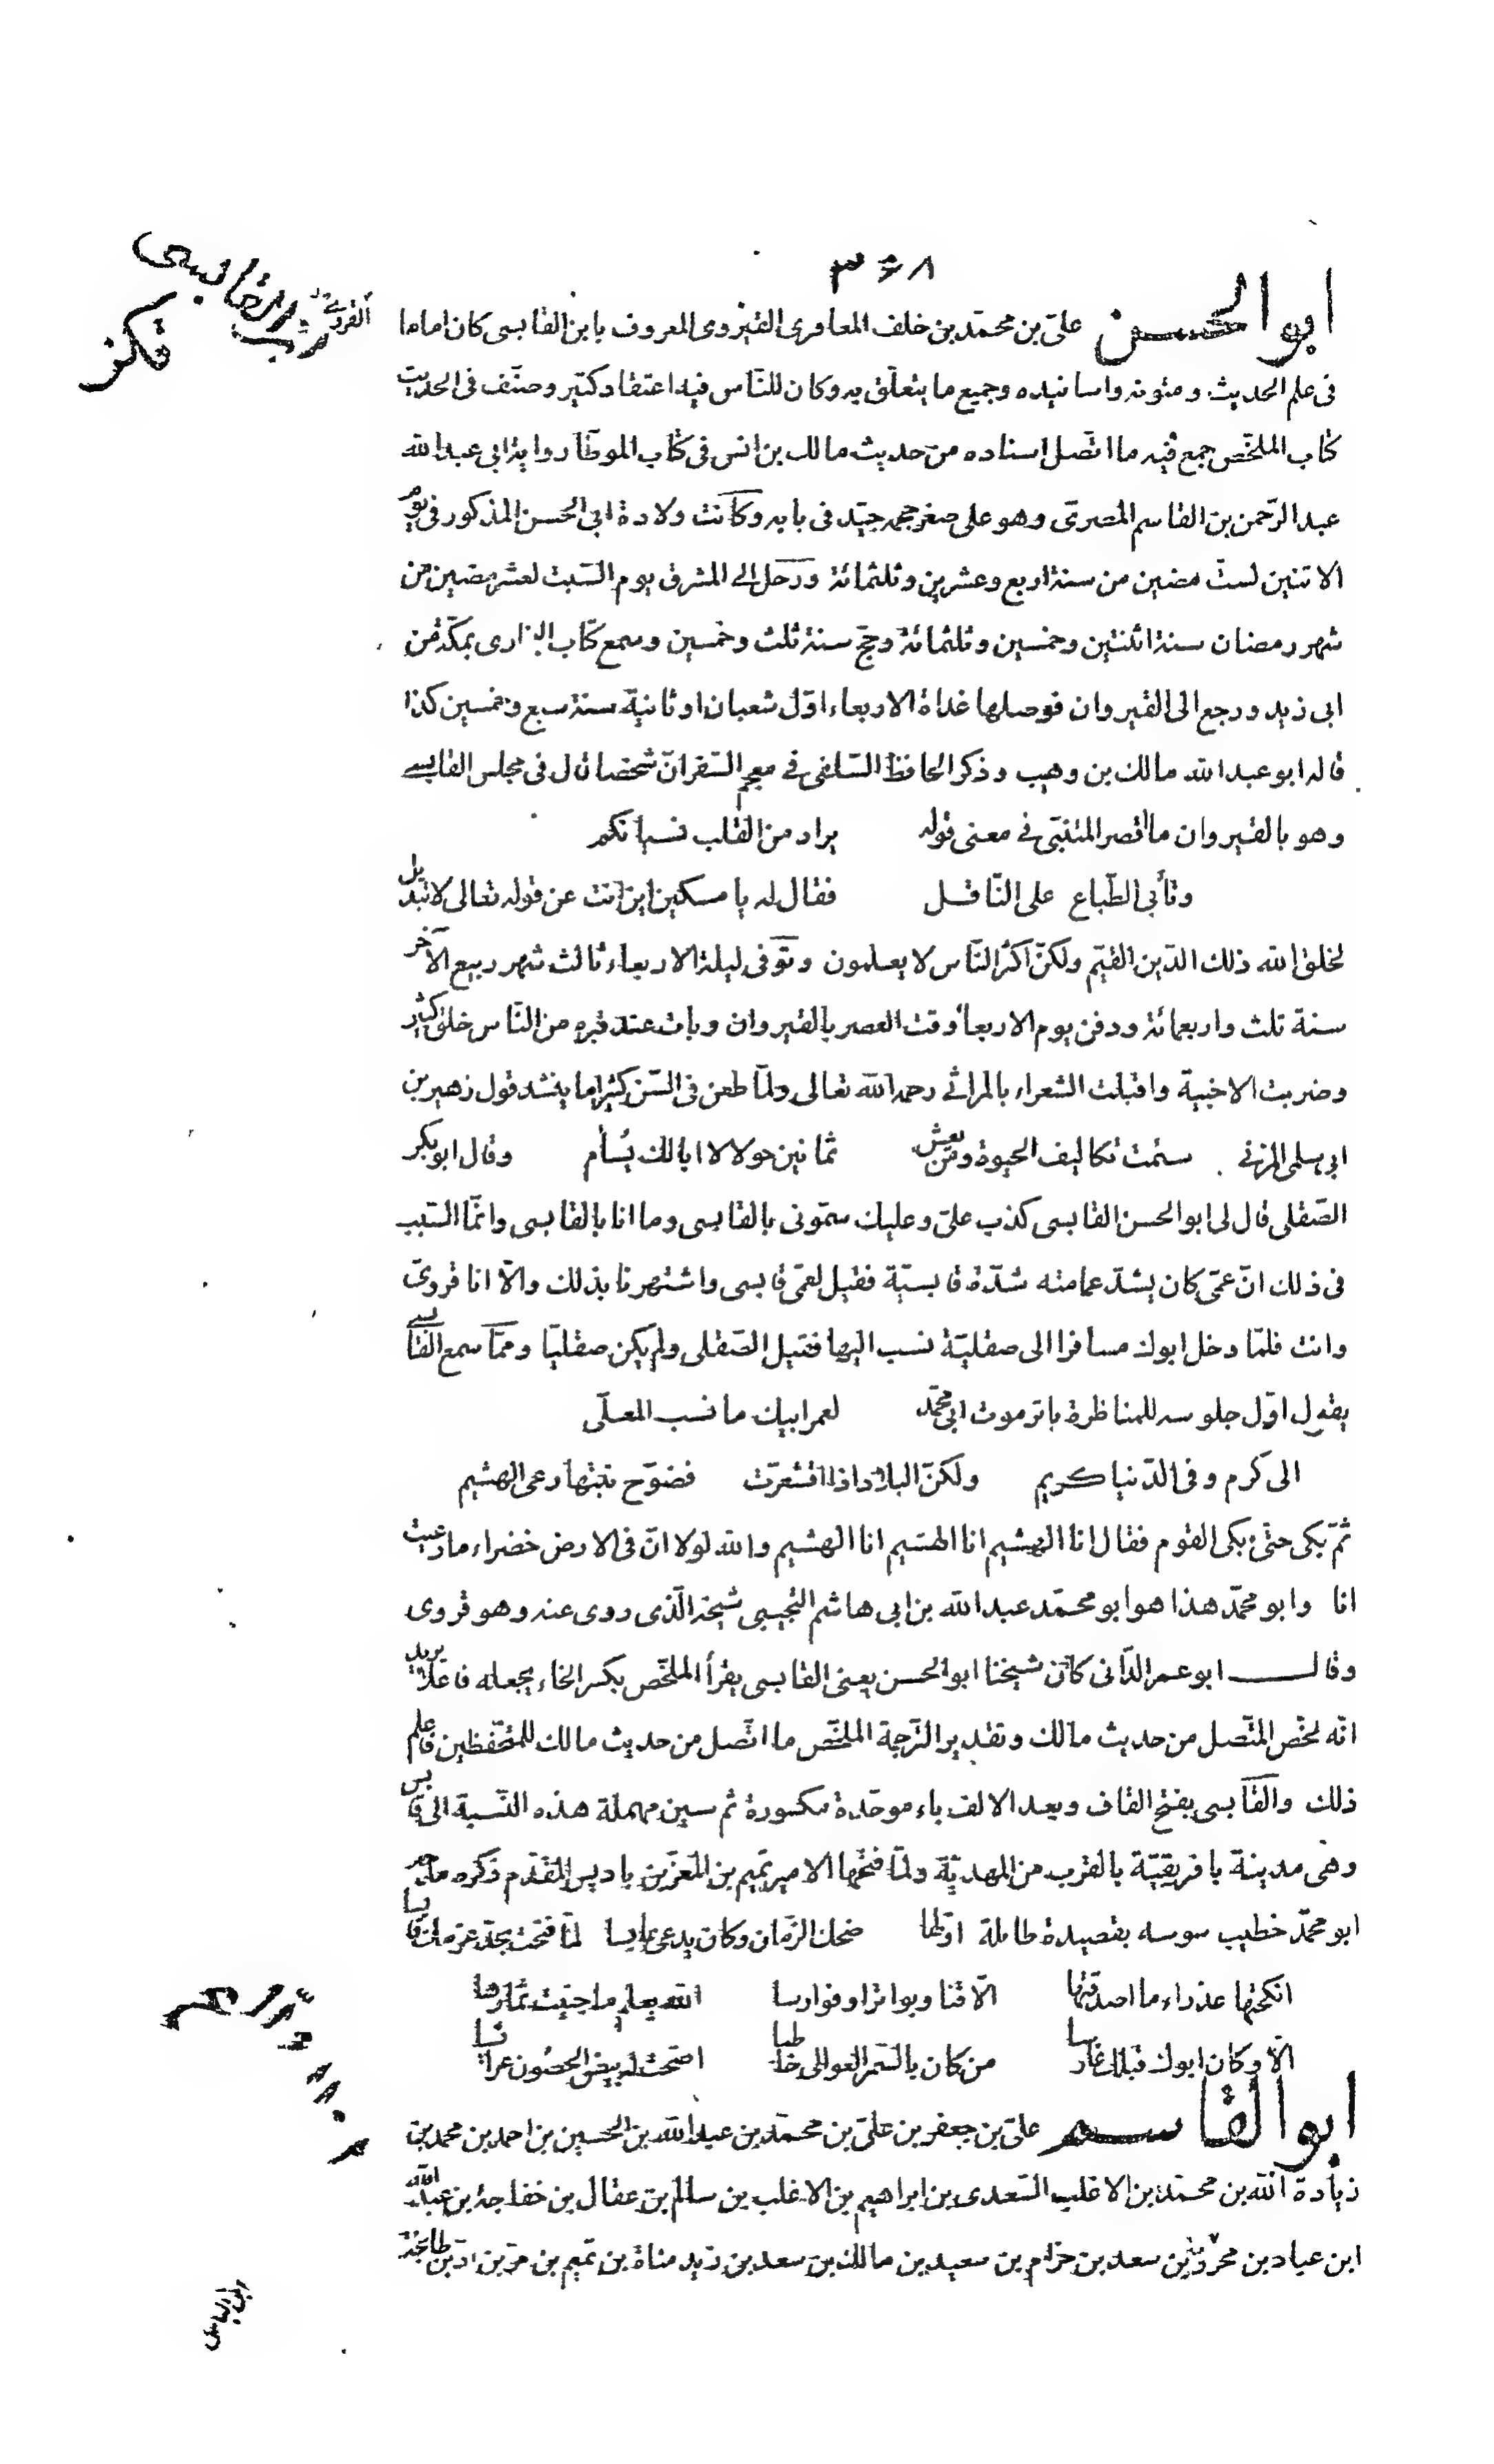 ٣٤٨
ابو الحسن علىّ بن محمّد بن خلف المعافرى القيروى المعروف بابن القابسى كان اماما
فى علم الحديث ومتونه واسانيده وجميع ما يتعلّق به وكان للنّاس فيه اعتقاد كثير وصنّف فى الحديث
كتاب الملخّص جمع فيه ما اتّصل اسناده من حديث مالك بن انس فى كتاب الموطّأ رواية ابى عبدالله
عبدالرّحمن بن القاسم المصرىّ وهو على صغر حجمه جيّد فى بابه وكانت ولادة ابى الحسن المذكور فى يوم
الاثنين لستّ مضين من سنة اربع وعشرين وثلثمائة ورحل الى المشرق يوم السّبت لعشر مضين من
شهر رمضان سنة اثنتين وخمسين وثلثمائة وحجّ سنة ثلث وخمسين وسمع كتاب البخارى بمكّة من
ابى زيد ورجع الى القيروان فوصلها غداة الاربعاء اوّل شعبان او ثانية سنة سبع وخمسين كذا
قاله ابو عبدالله مالك بن وهيب وذكر الحافظ السّلفى فى معجم السّفر انّ شخصا قال فى مجلس القابسى
وهو بالقيروان ما اقصر المتنبّى فى معنى قوله يراد من القلب نسيانكم
وتأبى الطّباع على النّاقل فقال له يا مسكين اين انت عن قوله تعالى لا تبديل
لخلق الله ذلك الدّين القيّم ولكنّ اكثر النّاس لا يعلمون وتوّفى ليلة الاربعاء ثالث شهر ربيع الآخر
سنة ثلث واربعمائة ودفن يوم الاربعاء وقت العصر بالقيروان وبات عند قبره من النّاس خلق كثير
وضربت الاخبية واقبلت الشعراء بالمراثى رحمه الله تعالى ولمّا طعن فى السّن كثيراما ينشد قول زهير بن
ابى سلمى المزنى سئمت تكاليف الحيوة ومن يعش ثمانين حولا لا ابالك يسأم وقال ابو بكر
الصّقلى قال لى ابو الحسن القابسى كذب علىّ وعليك سمّونى بالقابسى وما انا بالقابسى وانمّا السّبب
فى ذلك انّ عمّى كان يشدّ عمامته شدّة قابسيّة فقيل لعمّى قابسى واشتهرنا بذلك والّا انا قروىّ
وانت فلمّا دخل ابوك مسافرا الى صقليّة نسب اليها فقيل الصّقلى ولم يكن صقليّا وممّا سمع القابسى
يقول اوّل جلوسه للمناظرة باثر موت ابى محمّد لعمر ابيك ما نسب المعلّى
الى كرم وفى الدّنيا كريم ولكنّ البلاد اذا اقشعرّت فضوّح نبتها رعى الهشيم
ثمّ بكى حتّى بكى القوم فقال انا الهشيم انا الهشيم انا الهشيم والله لولا انّ فى الارض خضراء ما رعيت
انا وابو محمّد هذا هو ابو محمّد عبدالله بن ابى هاشم التجيبى شيخه الّذى روى عنه وهو قروى
وقال ابو عمر الدّانى كان شيخنا ابو الحسن يعنى القابسى يقرأ الملخّص بكسر الخاء يجعله فاعلا يريد
انّه لخّص المتّصل من حديث مالك وتقدير الترجمة الملخّص ما اتّصل من حديث مالك للمتحّفظين فاعلم
ذلك والقابسى بفتح القاف وبعد الالف باء موحّدة مكسورة ثم سين مهملة هذه النّسبة الى قابس
وهى مدينة بافريقيّة بالقرب من المهديّة ولمّا فتحها الامير تميم بن المعزّ بن باديس المقدّم ذكره مدحه
ابو محمّد خطيب سوسه بقصيدة طائلة اوّلها ضحك الزّمان وكان يدعى عابسا لمّا فتحت بحدّ عزمك قابسا
انكحتها عذراء ما اصدقتها الّا قنا وبواترا وفوارسا الله يعلم ما جنيت ثمارها
الّا وكان ابوك قبلك غارسا من كان بالسّمر العوالى خاطبا اضحت له بيض الحصون عرائسا
ابو القاسم علىّ بن جعفر بن علىّ بن محمّد بن عبدالله بن الحسين بن احمد بن محمد بن
زيادة الله بن محمّد بن الاغلب السّعدى بن ابراهيم بن الاغلب بن سالم بن عقال بن خفاجة بن عبدالله
ابن عباد بن محرث بن سعد بن حزام بن سعيد بن مالك بن سعد بن زيد مناة بن تميم بن مرّ بن ادّ بن طابخة